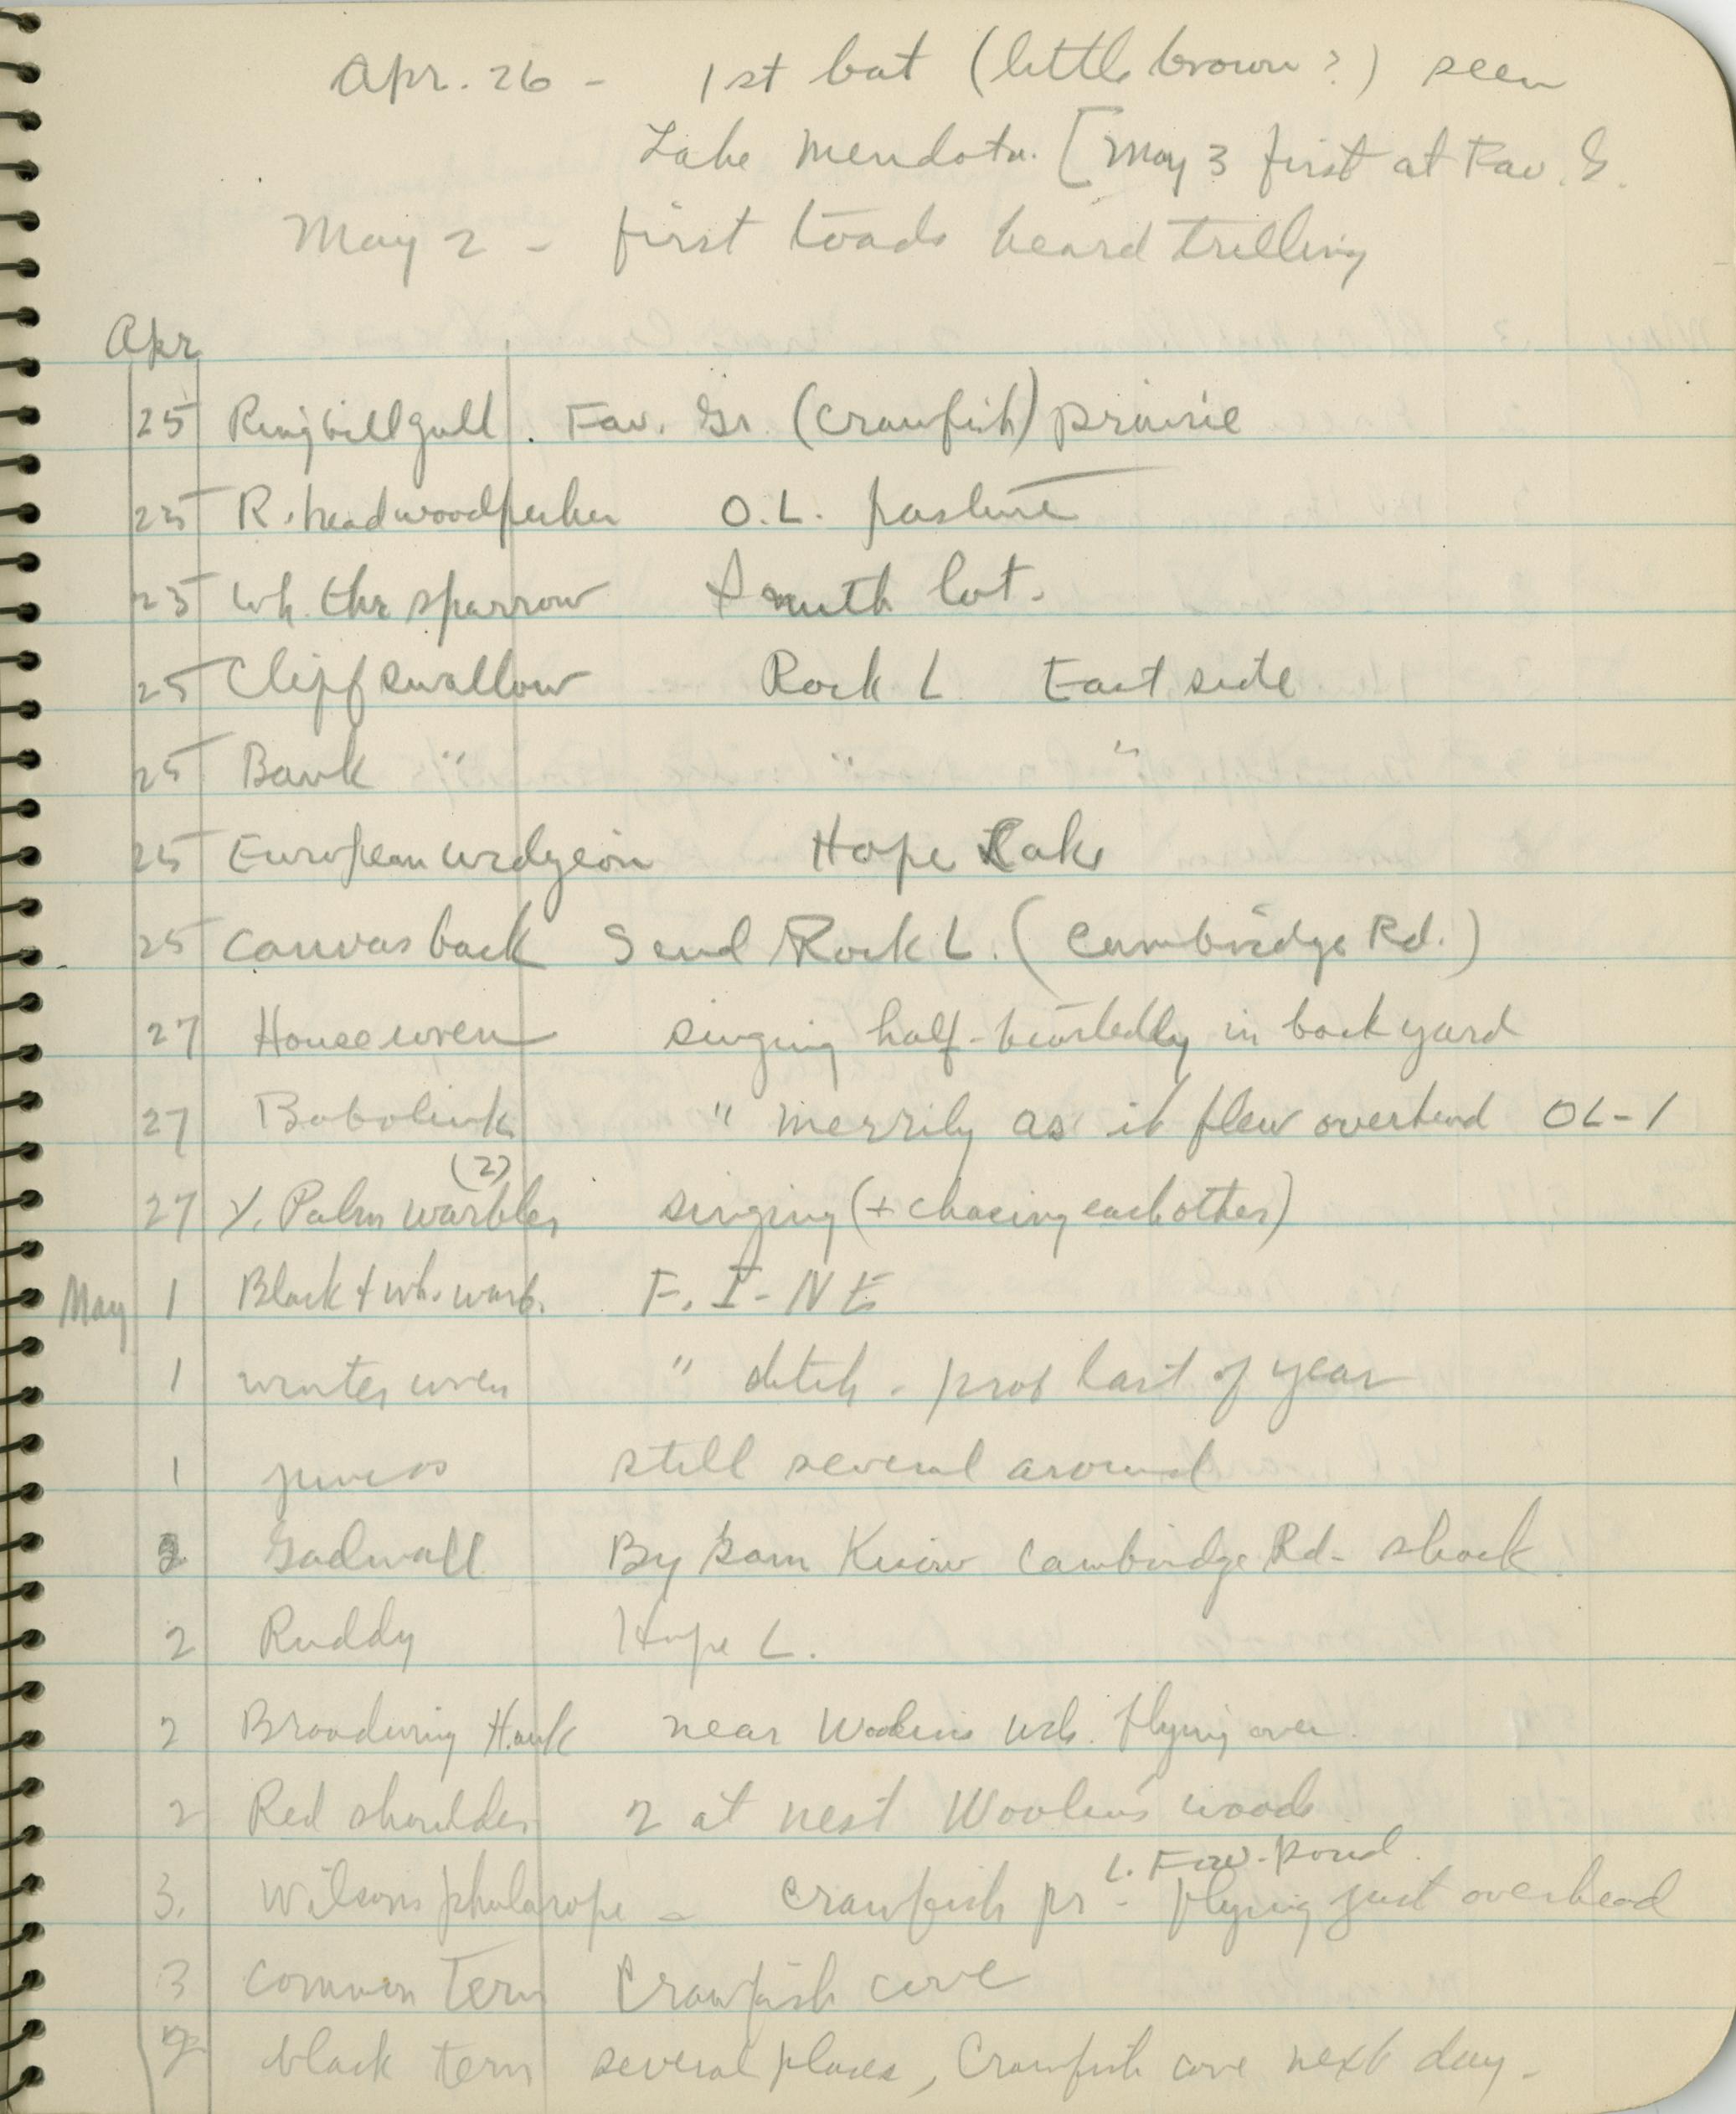 Apr. 26 - 1st bat (little brown?) seen
Lake Mendota. [May 3 first at Fav. G.
May 2 - first toads heard trilling
Apr
25 Ringbill gull . Fav. Gr. (Crawfish) prairie
25 R. head woodpecker O.L. pasture
25 Wh. thr sparrow Smith lot.
25 Cliff swallow Rock L East side
25 Bank " " "
25 European widgeon Hope Lake
25 Canvasback S end Rock L. (Cambridge Rd.)
27 House wren singing half-heartedly in back yard
27 Bobolink " merrily as it flew overhead OL-1
(2)
27 Y. Palm warbler singing (+ chasing each other)
May 1 Black + wh. warb. F. I - NE
1 winter wren " ditch - prob last of year
1 juncos still several around
2 Gadwall By Sam Cambridge Rd- shack
2 Ruddy Hope L.
2 Broadwing Hawk near flying over.
2 Red shoulder 2 at nest woods
L. Fav. pond.
3. Wilsons phalarope - Crawfish pr - flying just overhead
3 common tern Crawfish cove
2 black tern several places, Crawfish cove next day.